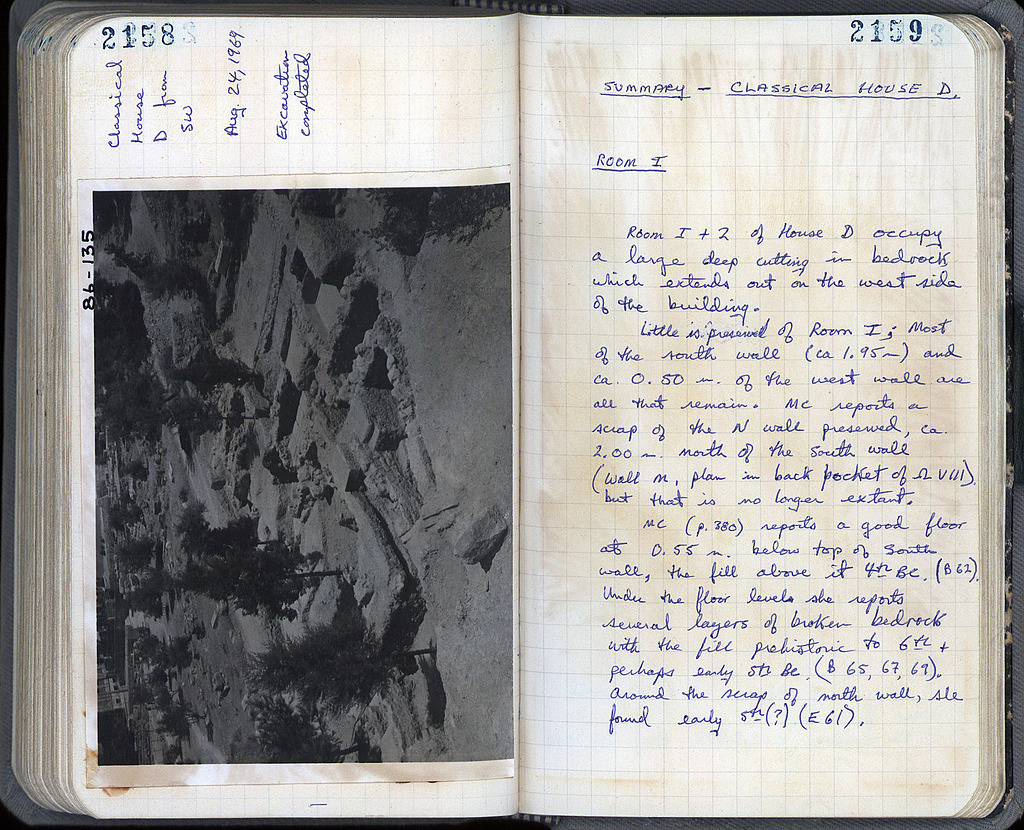 2158
Classical
House
D from
SW
Aug. 24, 1969
Excavation
completed
86-135
2159
SUMMARY - CLASSICAL HOUSE D.
ROOM I
Room I + 2 of House D occupy
a large deep cutting in bedrock
which extends out on the west side
of the building.
Little is preserved of Room I; Most
of the south wall (ca 1.95m) and
ca. 0.50 m. of the west wall are
all that remain. MC reports a
scrap of the N wall preserved, ca.
2.00 m. north of the south wall
(wall m, plan in back pocket of Ω VIII)
but that is no longer extant.
MC (p. 380) reports a good floor
at 0.55 m. below top of south
wall, the fill above it 4th BC. (B 62).
Under the floor levels she reports
several layers of broken bedrock
with the fill prehistoric to 6th +
perhaps early 5th BC. (B 65, 67, 69).
Around the scrap of north wall, she
found early 5th(?) (E 61).